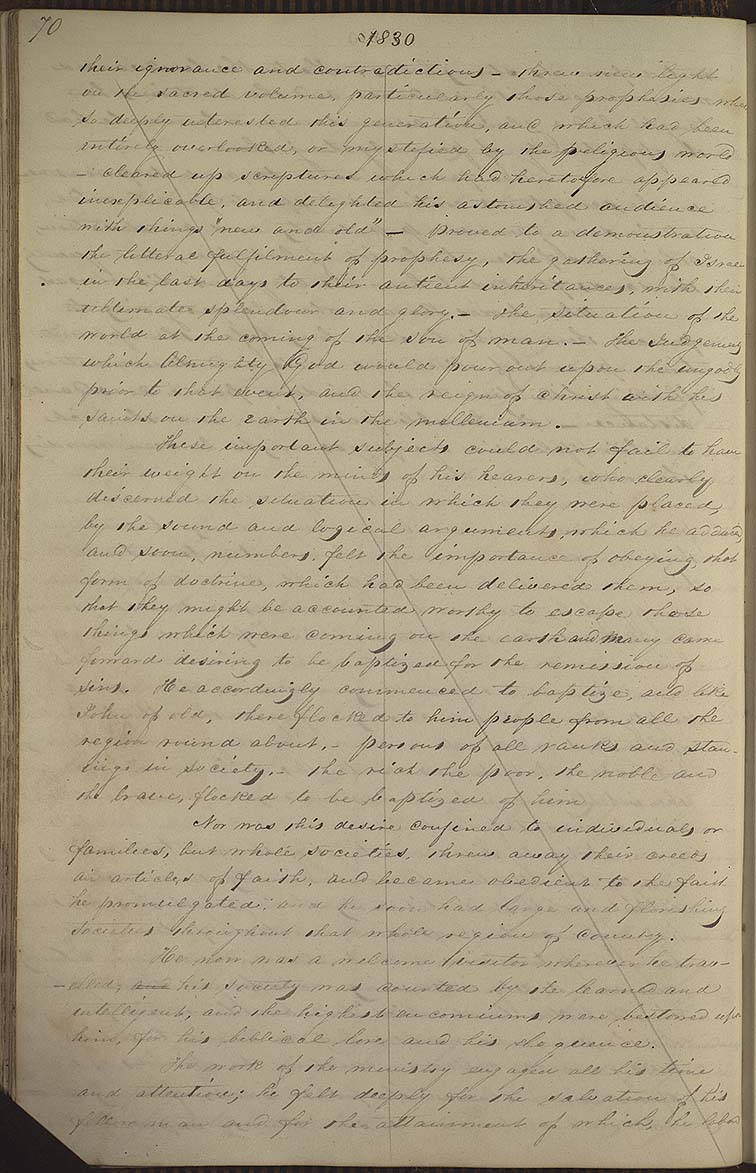 70
1830
their ignorance and contradictions - threw new light
on the sacred volume, particularly those prophesies which
so deeply interested this generation, and which had been
entirely overlooked, or mystefied by the religious world
- cleared up scriptures which had heretofore appeared
inexplicable, and delighted his astonished audience
with things "new and old" - proved to a demonstration
the litteral fulfilment of prophesy, the gathering of Israel
in the last days to their antient inheritances, with their
ultimate splendour and glory. - the situation of the
world at the coming of the son of man. - the Judgements
which Almighty God would pour out upon the ungodly
prior to that event, and the reign of Christ with his
saints on the earth in the millenium.
These important subjects could not fail to have
their weight on the minds of his hearers, who clearly
discerned the situation in which they were placed,
by the sound and logical arguments, which he adduced,
and soon, numbers, felt the importance of obeying, that
form of doctrine, which had been delivered them, so
that they might be accounted worthy to escape those
things which were coming on the earth and many came
forward desiring to be baptized for the remission of
sins. He accordingly commenced to baptize, and like
John of old, there flocked to him people from all the
region round about, - persons of all ranks and stan-
ings in society, - the rich the poor, the noble and
the brave, flocked to be baptized of him
Nor was this desire confined to individuals or
families, but whole societies, threw away their creeds
an articles of faith, and became obedient to the faith
he promulgated, and he soon had large and florishing
societies throughout that whole region of country.
He now was a welcome visitor wherever he trav-
-elled; and his society was courted by the learned and
intelligent, and the highest encomiums were bestowed upon
him, for his biblical lore and his eloquence.
The work of the ministry engaged all his time
and attention; he felt deeply for the salvation of his
fellow man and for the attainment of which, he